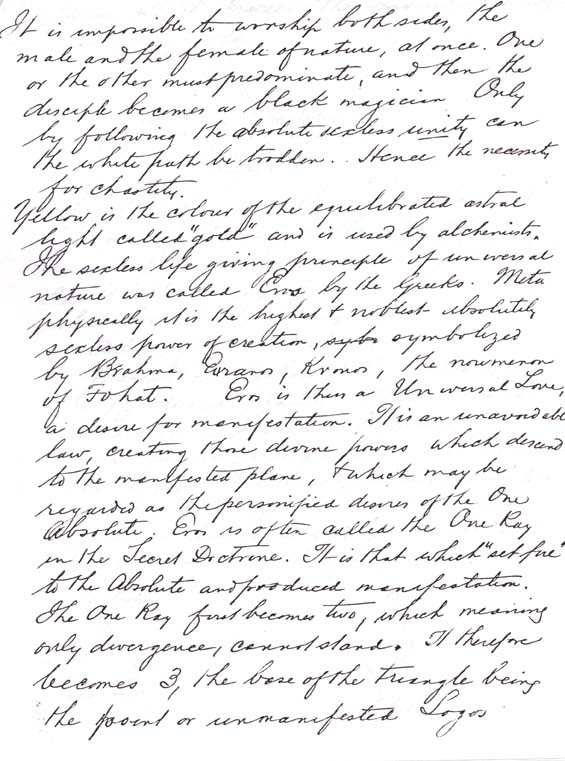 It is impossible to worship both sides, the
male and the female of nature, at once. One
or the other must predominate, and then the
disciple becomes a black magician Only
by following the absolute sexless unity can
the white path be trodden.. Hence the necessity
for chastity.
Yellow is the colour of the equilibrated astral
light called "gold" and is used by alchemists.
The sexless life giving principle of universal
nature was called Eros by the Greeks. Meta
physically it is the highest & noblest absolutely
sexless power of creation, symbolized
by Brahma, Euranos, Kronos, the noumenon
of Fohat. Eros is thus a Universal Love,
a desire for manifestation. It is an unavoidable
law, creating those divine powers which descend
to the manifested plane, & which may be
regarded as the personified desires of the One
Absolute. Eros is often called the One Ray
in the Secret Doctrine. It is that which "set fire"
to the Absolute and produced manifestation.
The One Ray first becomes two, which meaning
only divergence, cannot stand. It therefore
becomes 3, the base of the triangle being
the point or unmanifested Logos